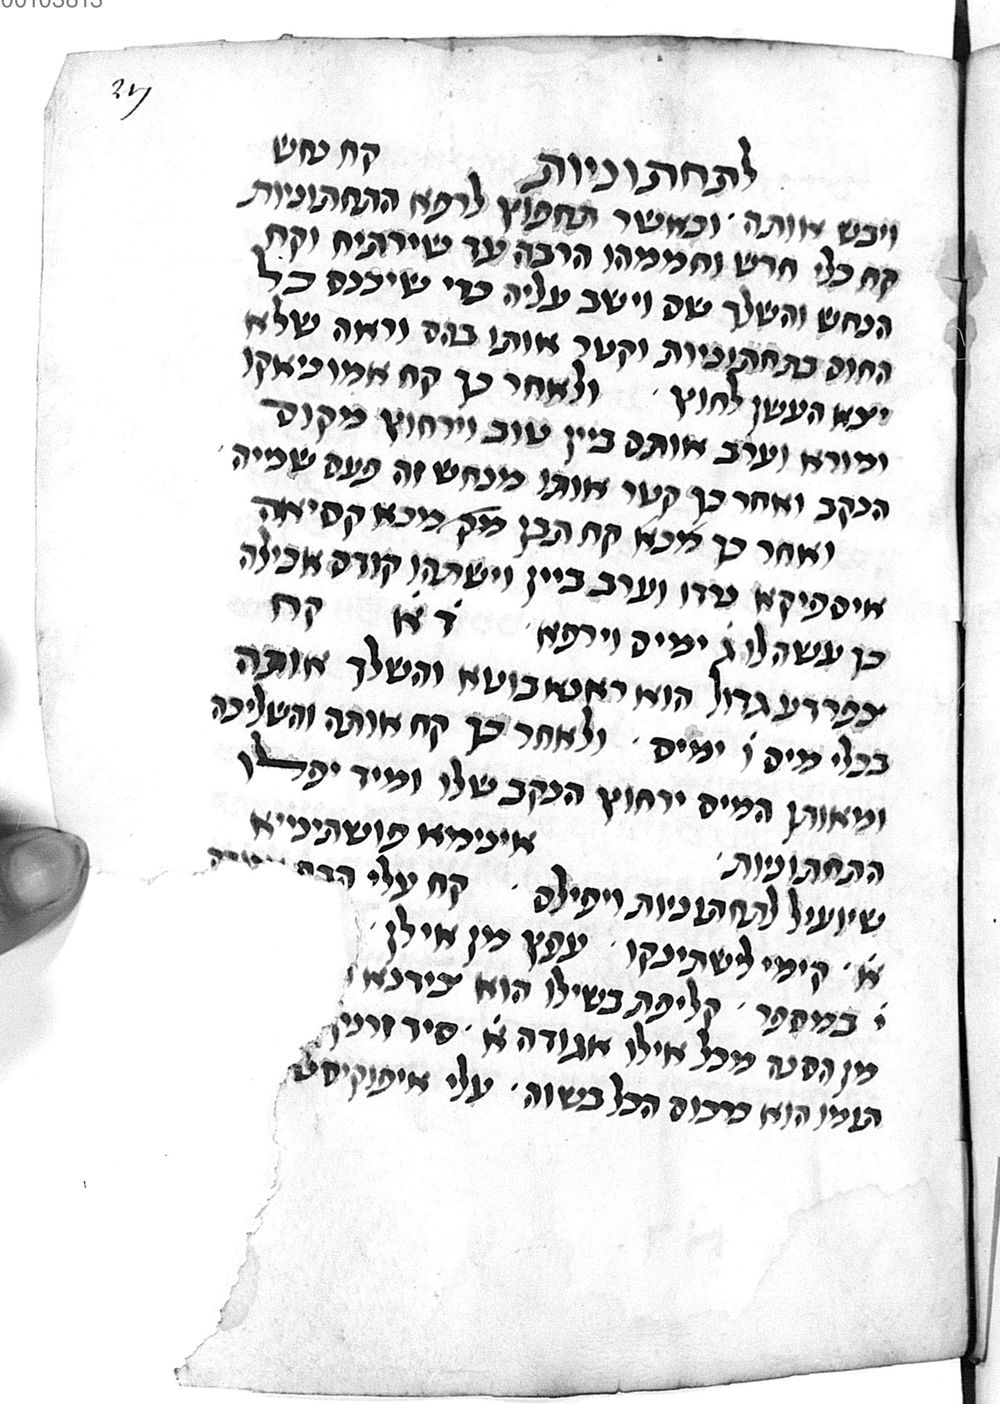 00103813
לתחתוניות קח נחש
ויבש אותה׳ וכאשר תחפוץ לרפא התחתוניות
קח כלי חרש וחממהו הרבה עד שירתיח וקח
הנחש והשלך שם וישב עליה כדי שיכנס כל
החום בתחתוניות וקטר אותו בהם וראה שלא
יצא העשן לחוץ׳ ולאחר כך קח אמוניאקו
ומורא וערב אותם ביין טוב וירחוץ מקום
הנקב ואחר כך קטר אותו מנחש זה פעם שמיה׳
ואחר כך קח תבן מנא קסיאה
איספיקא נרדו וערב ביין וישתהו קודם אכילה
כן עשה לו ג׳ ימים וירפא׳ ד׳ א׳ קח
צפרדע גדול הוא ראנא בוטא והשלך אותה
בכלי מים ו׳ ימים׳ ולאחר כך קח אותה והשליכה
ומאותן המים ירחוץ הנקב שלו ומיד יפלו
התחתוניות׳ אינימא פושתינייא
שיועיל לתחתוניות ויפילם׳ קח עלי
א׳׳ קימי לישתינקו׳ עפץ מן אילן׳
י׳ במספר׳ קליפת בשילו הוא
מן הסנה מכל אילו אגודה א׳׳ סיד זרניך
הוא מרכוס הכל בשוה׳ עלי